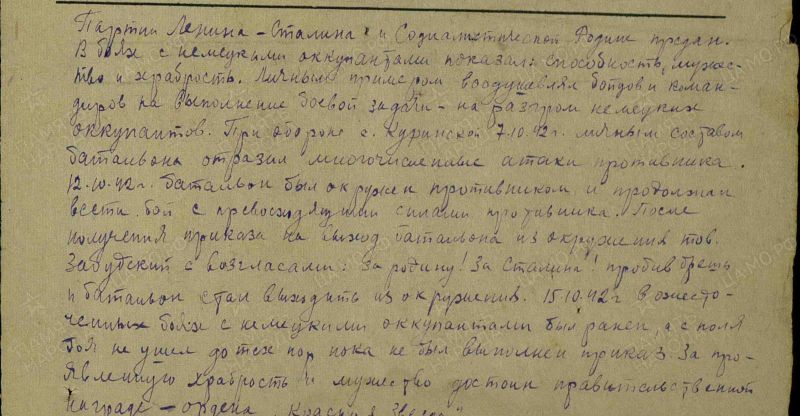 Партии Ленина - Сталина и Социалистической Родине предан.
В боях с немецкими оккупантами показал: способность, муже-
ство и храбрость. Личным примером воодушевлял бойцов и коман-
диров на выполнение боевой задачи - на разгром немецких
оккупантов. При обороне с. Куринской 7.10.42г. личным составом
батальона отразил многочисленные атаки противника.
12.10.42г. батальон был окружен противником и продолжал
вести бой с превосходящими силами противника. После
получения приказа на выход батальона из окружения тов.
Забудский с возгласами: За родину! За Сталина! пробив брешь
и батальон стал выходить из окружения. 15.10.42г в ожесто-
ченных боях с немецкими оккупантами был ранен, а с поля
боя не ушел до тех пор пока не был выполнен приказ. За про-
явленную храбрость и мужество достоин правительственной
награде - ордена "Красная Звезда"